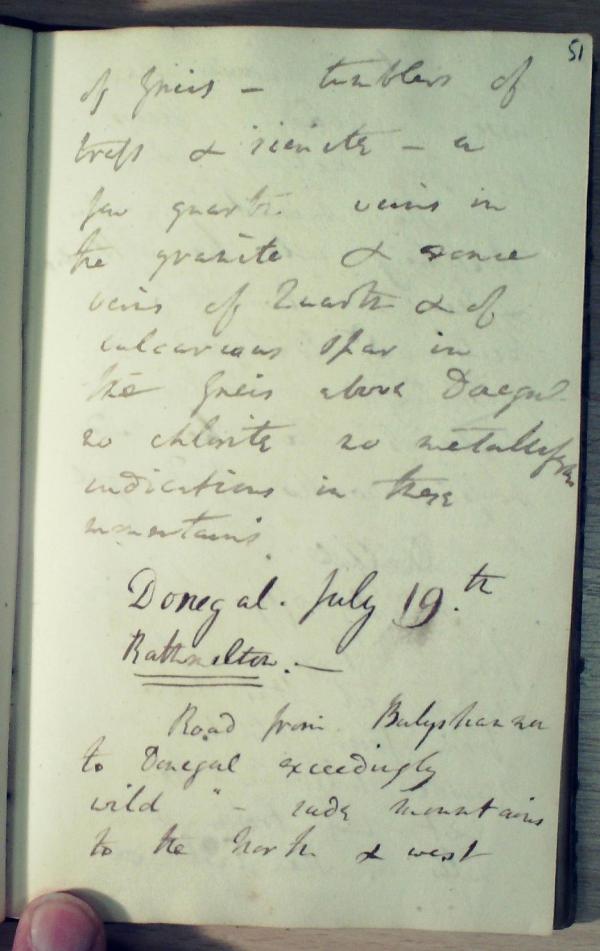 51
of Gneis - tumblers of
trap & sienite - a
few quartz veins in
the granite & some
veins of Quartz & of
calcareous spar in
the Gneis above Donegal
no chlorite no metalliferous
indications in these
mountains.
Donegal. July 19.th
Rathmelton. —
Road from Balyshannon
to Donegal exceedingly
wild " - rude mountains
to the North & west